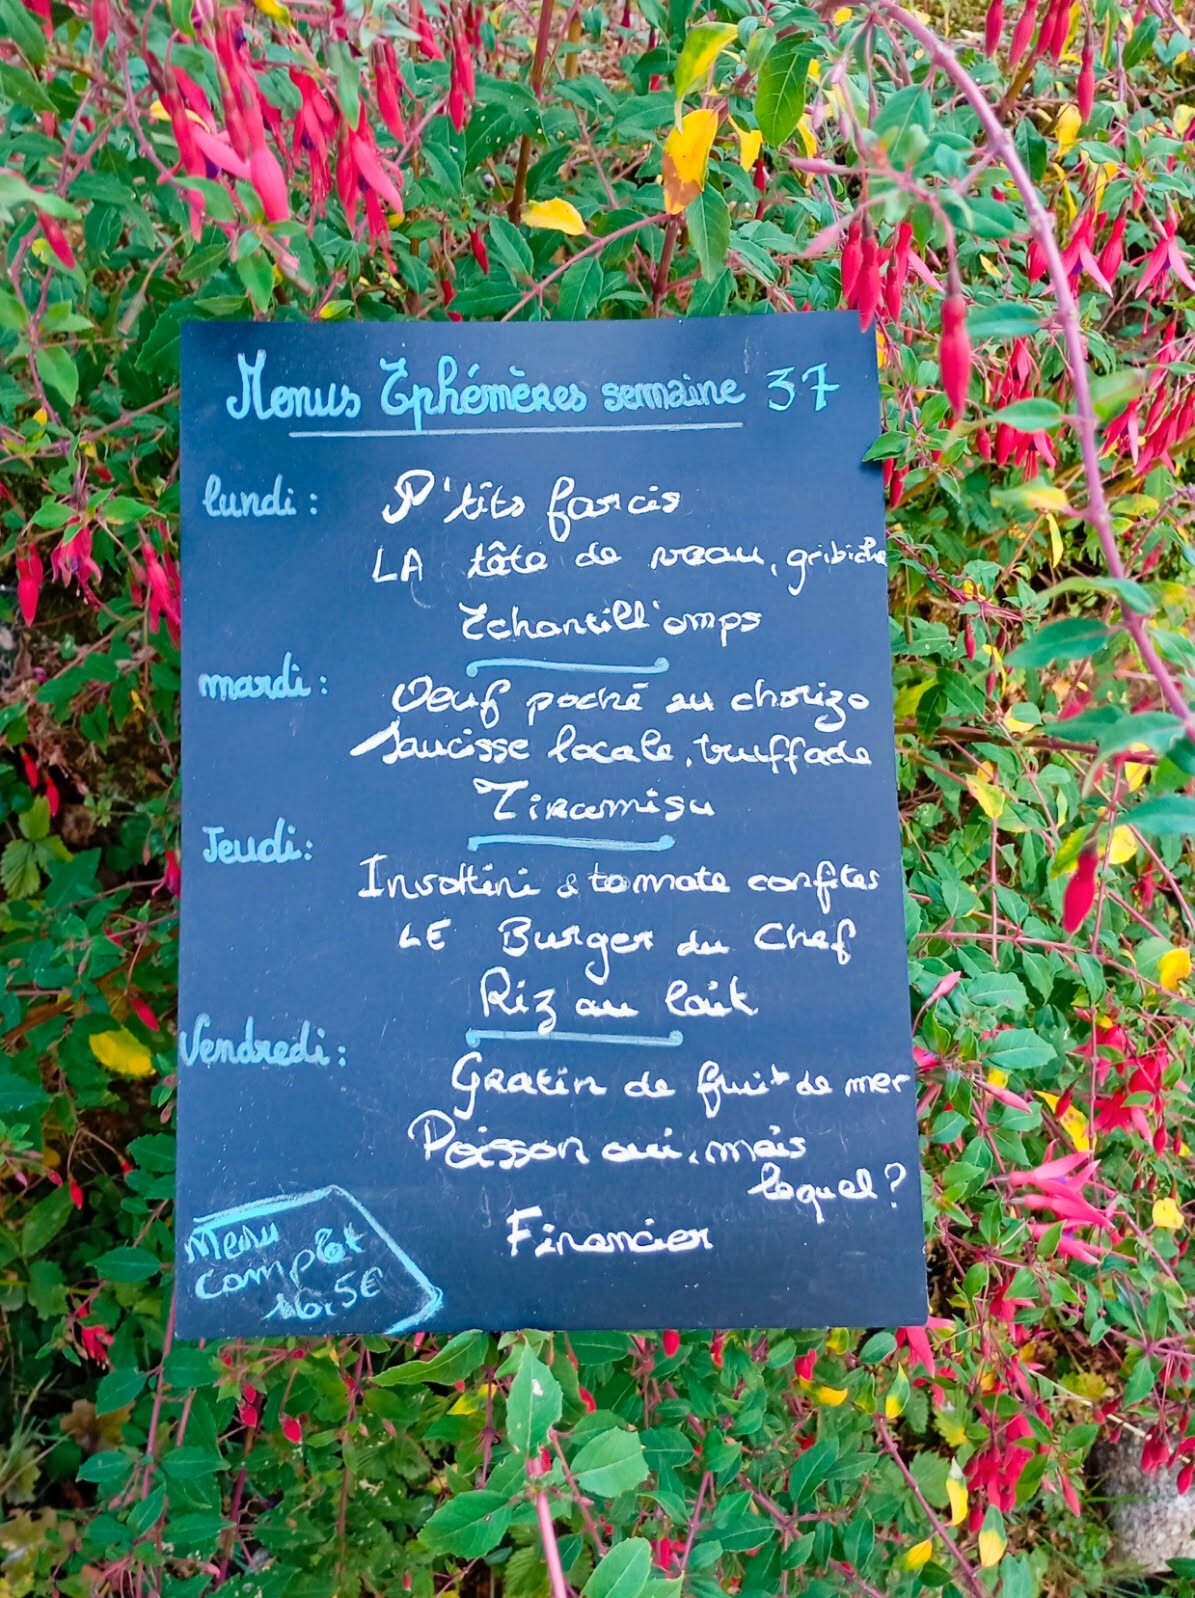 Menus Ephémères semaine 37
lundi :
P'tits farcis
LA tête de veau, gribiche
Echantill'omps
mardi :
Oeuf poché au chorizo
Saucisse locale, truffade
Tiramisu
Jeudi :
Involtini & tomate confites
LE Burger du Chef
Riz au lait
Vendredi :
Gratin de fruit de mer
Poisson oui, mais
lequel ?
Financier
Menu
complet
16,5€